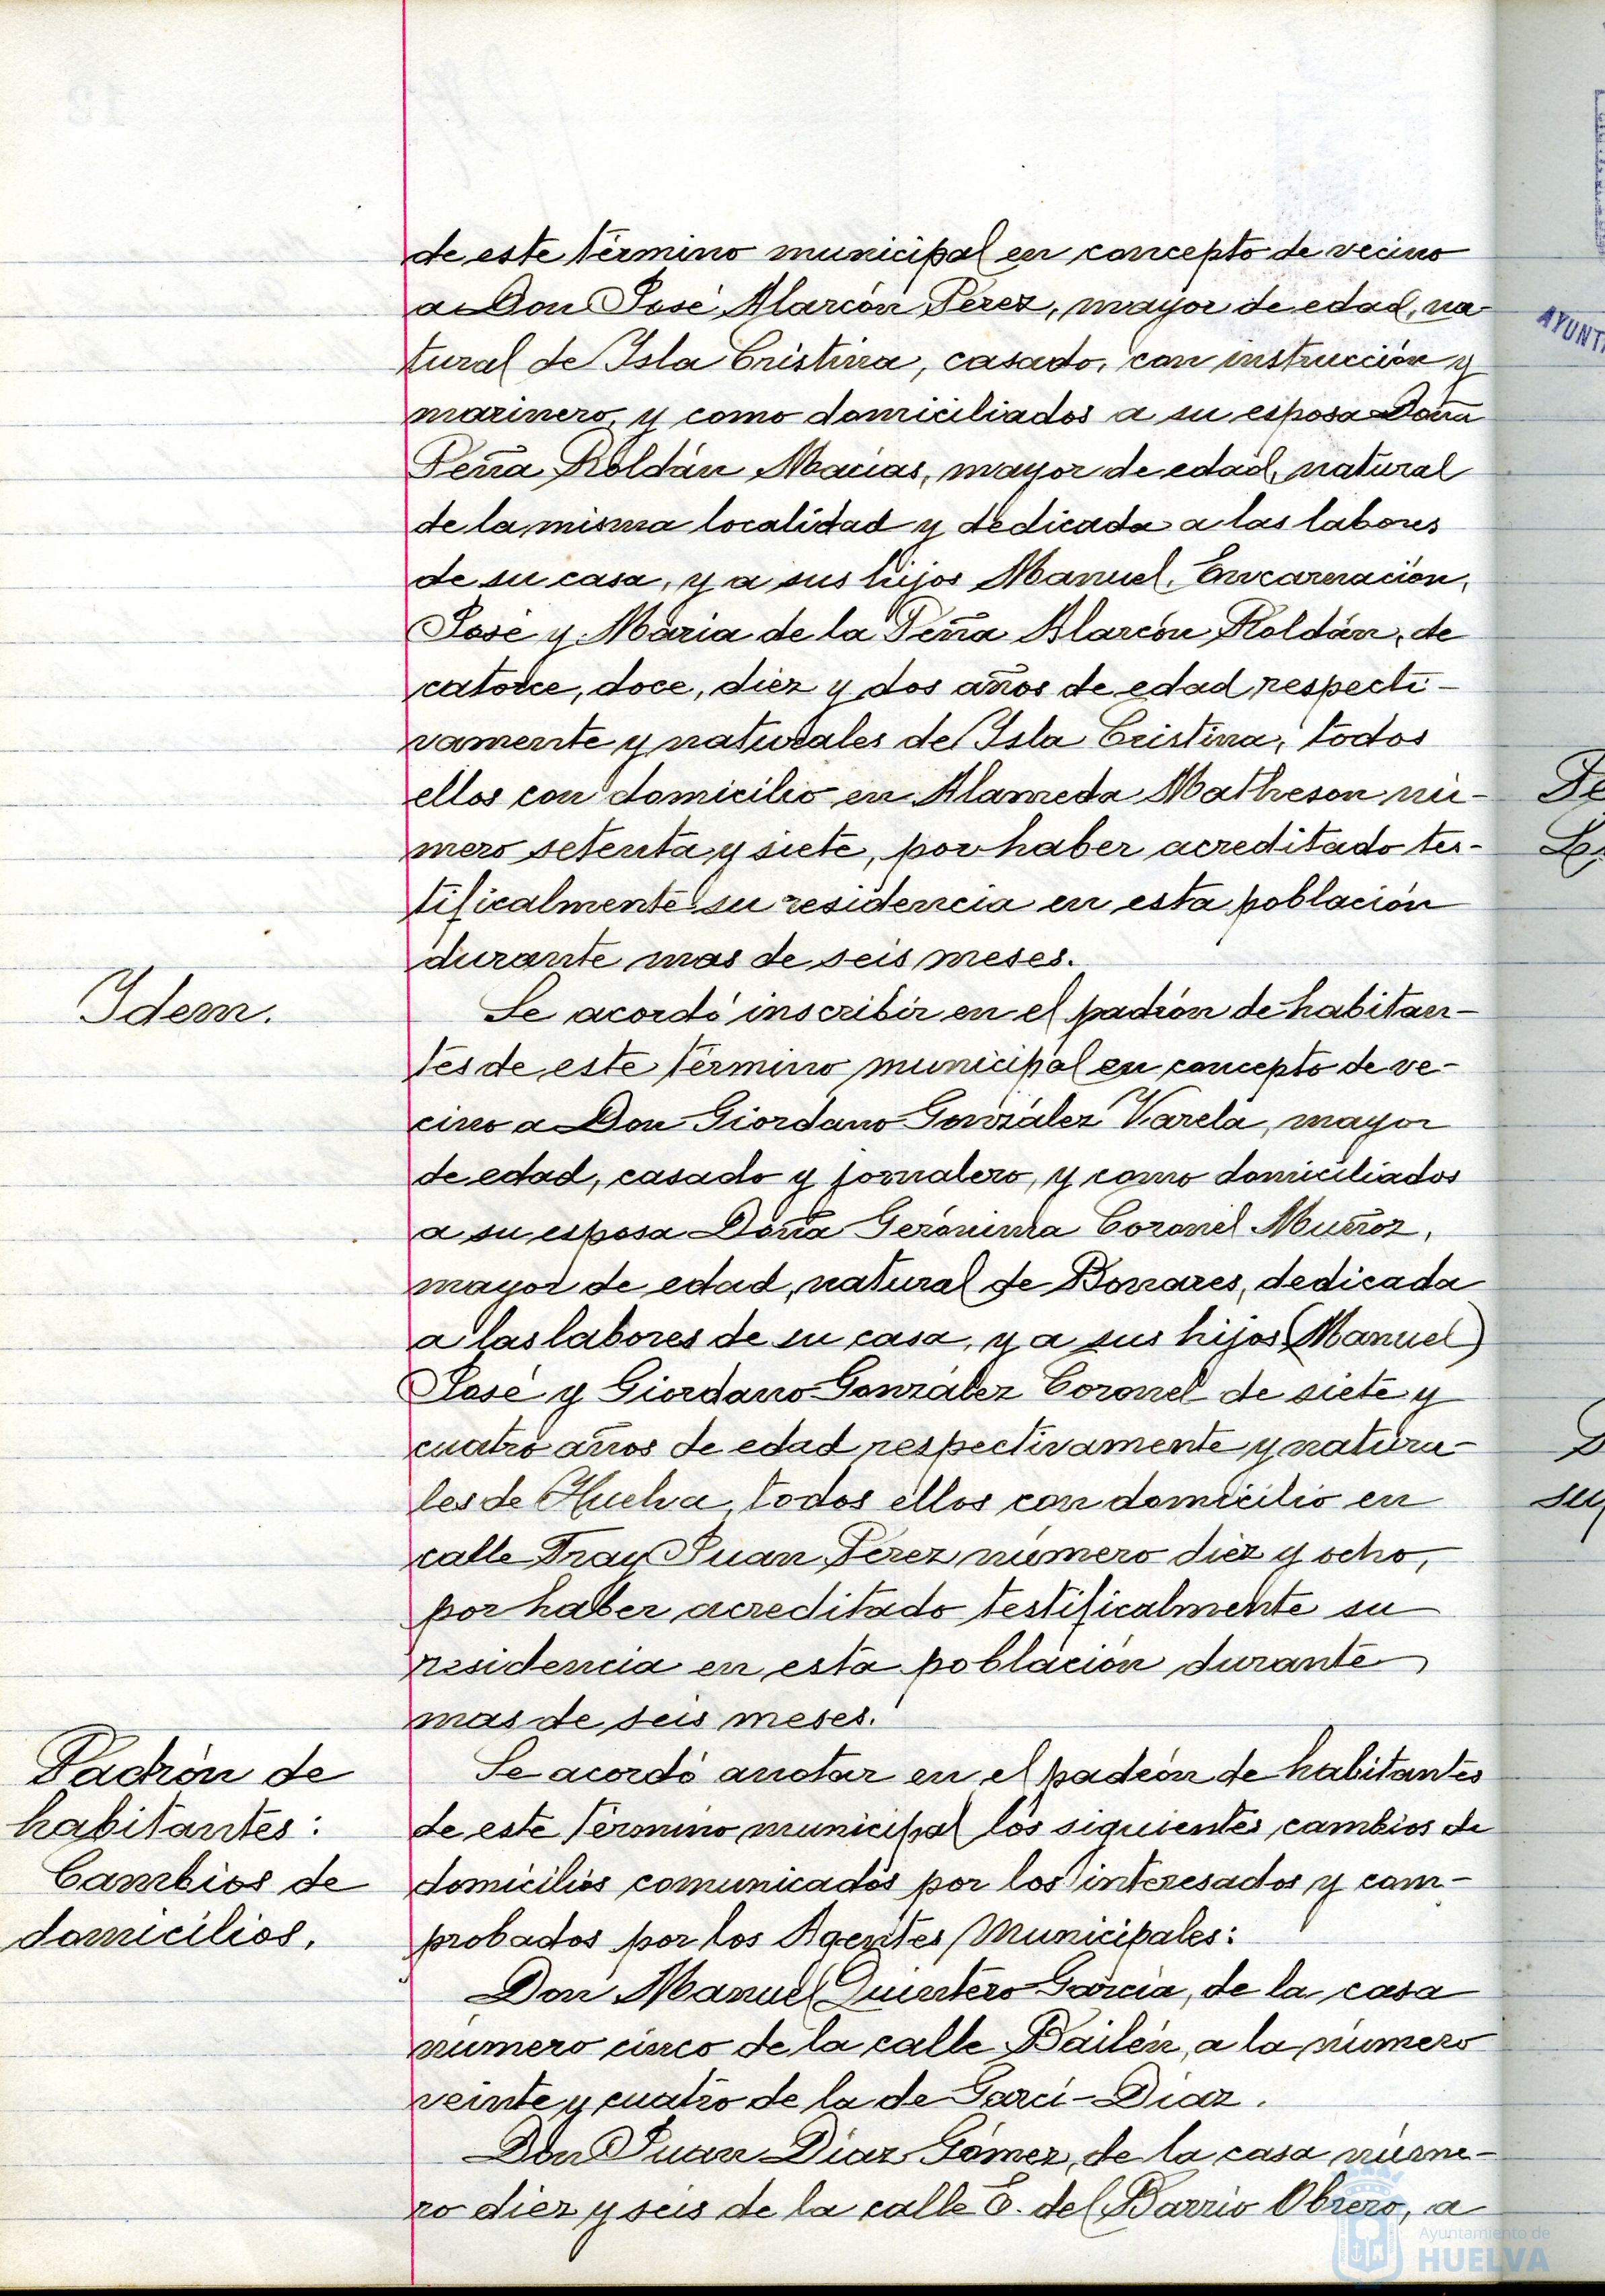 de este término municipal en concepto de vecino
a Don José Alarcón Pérez, mayor de edad, na-
tural de Isla Cristina, casado, con instrucción y
marinero, y como domiciliados a su esposa Doña
Peña Roldán Macías, mayor de edad, natural
de la misma localidad y dedicada a las labores
de su casa, y a sus hijos Manuel, Encarnación,
José y María de la Peña Alarcón Roldán, de
catorce, doce, diez y dos años de edad respecti-
vamente y naturales de Isla Cristina, todos
ellos con domicilio en Alameda Matheson nú-
mero setenta y siete, por haber acreditado tes-
tificalmente su residencia en esta población
durante mas de seis meses.
Idem.
Se acordó inscribir en el padrón de habitan-
tes de este término municipal en concepto de ve-
cino a Don Giordano González Varela, mayor
de edad, casado y jornalero, y como domiciliados
a su esposa Doña Gerónima Coronel Muñoz,
mayor de edad, natural de Bonares, dedicada
a las labores de su casa, y a sus hijos (Manuel)
José y Giordano González Coronel de siete y
cuatro años de edad respectivamente y natura-
les de Huelva, todos ellos con domicilio en
calle Fray Juan Pérez número diez y ocho,
por haber acreditado testificalmente su
residencia en esta población durante
mas de seis meses.
Padrón de
habitantes:
Cambios de
domicilios.
Se acordó anotar en el padrón de habitantes
de este término municipal los siguientes cambios de
domicilios comunicados por los interesados y com-
probados por los Agentes Municipales:
Don Manuel Quintero García, de la casa
número cinco de la calle Bailén, a la número
veinte y cuatro de la de Garci-Díaz.
Don Juan Díaz Gómez, de la casa núme-
ro diez y seis de la calle E. del Barrio Obrero, a
AYUNT
Ayuntamiento de
HUELVA